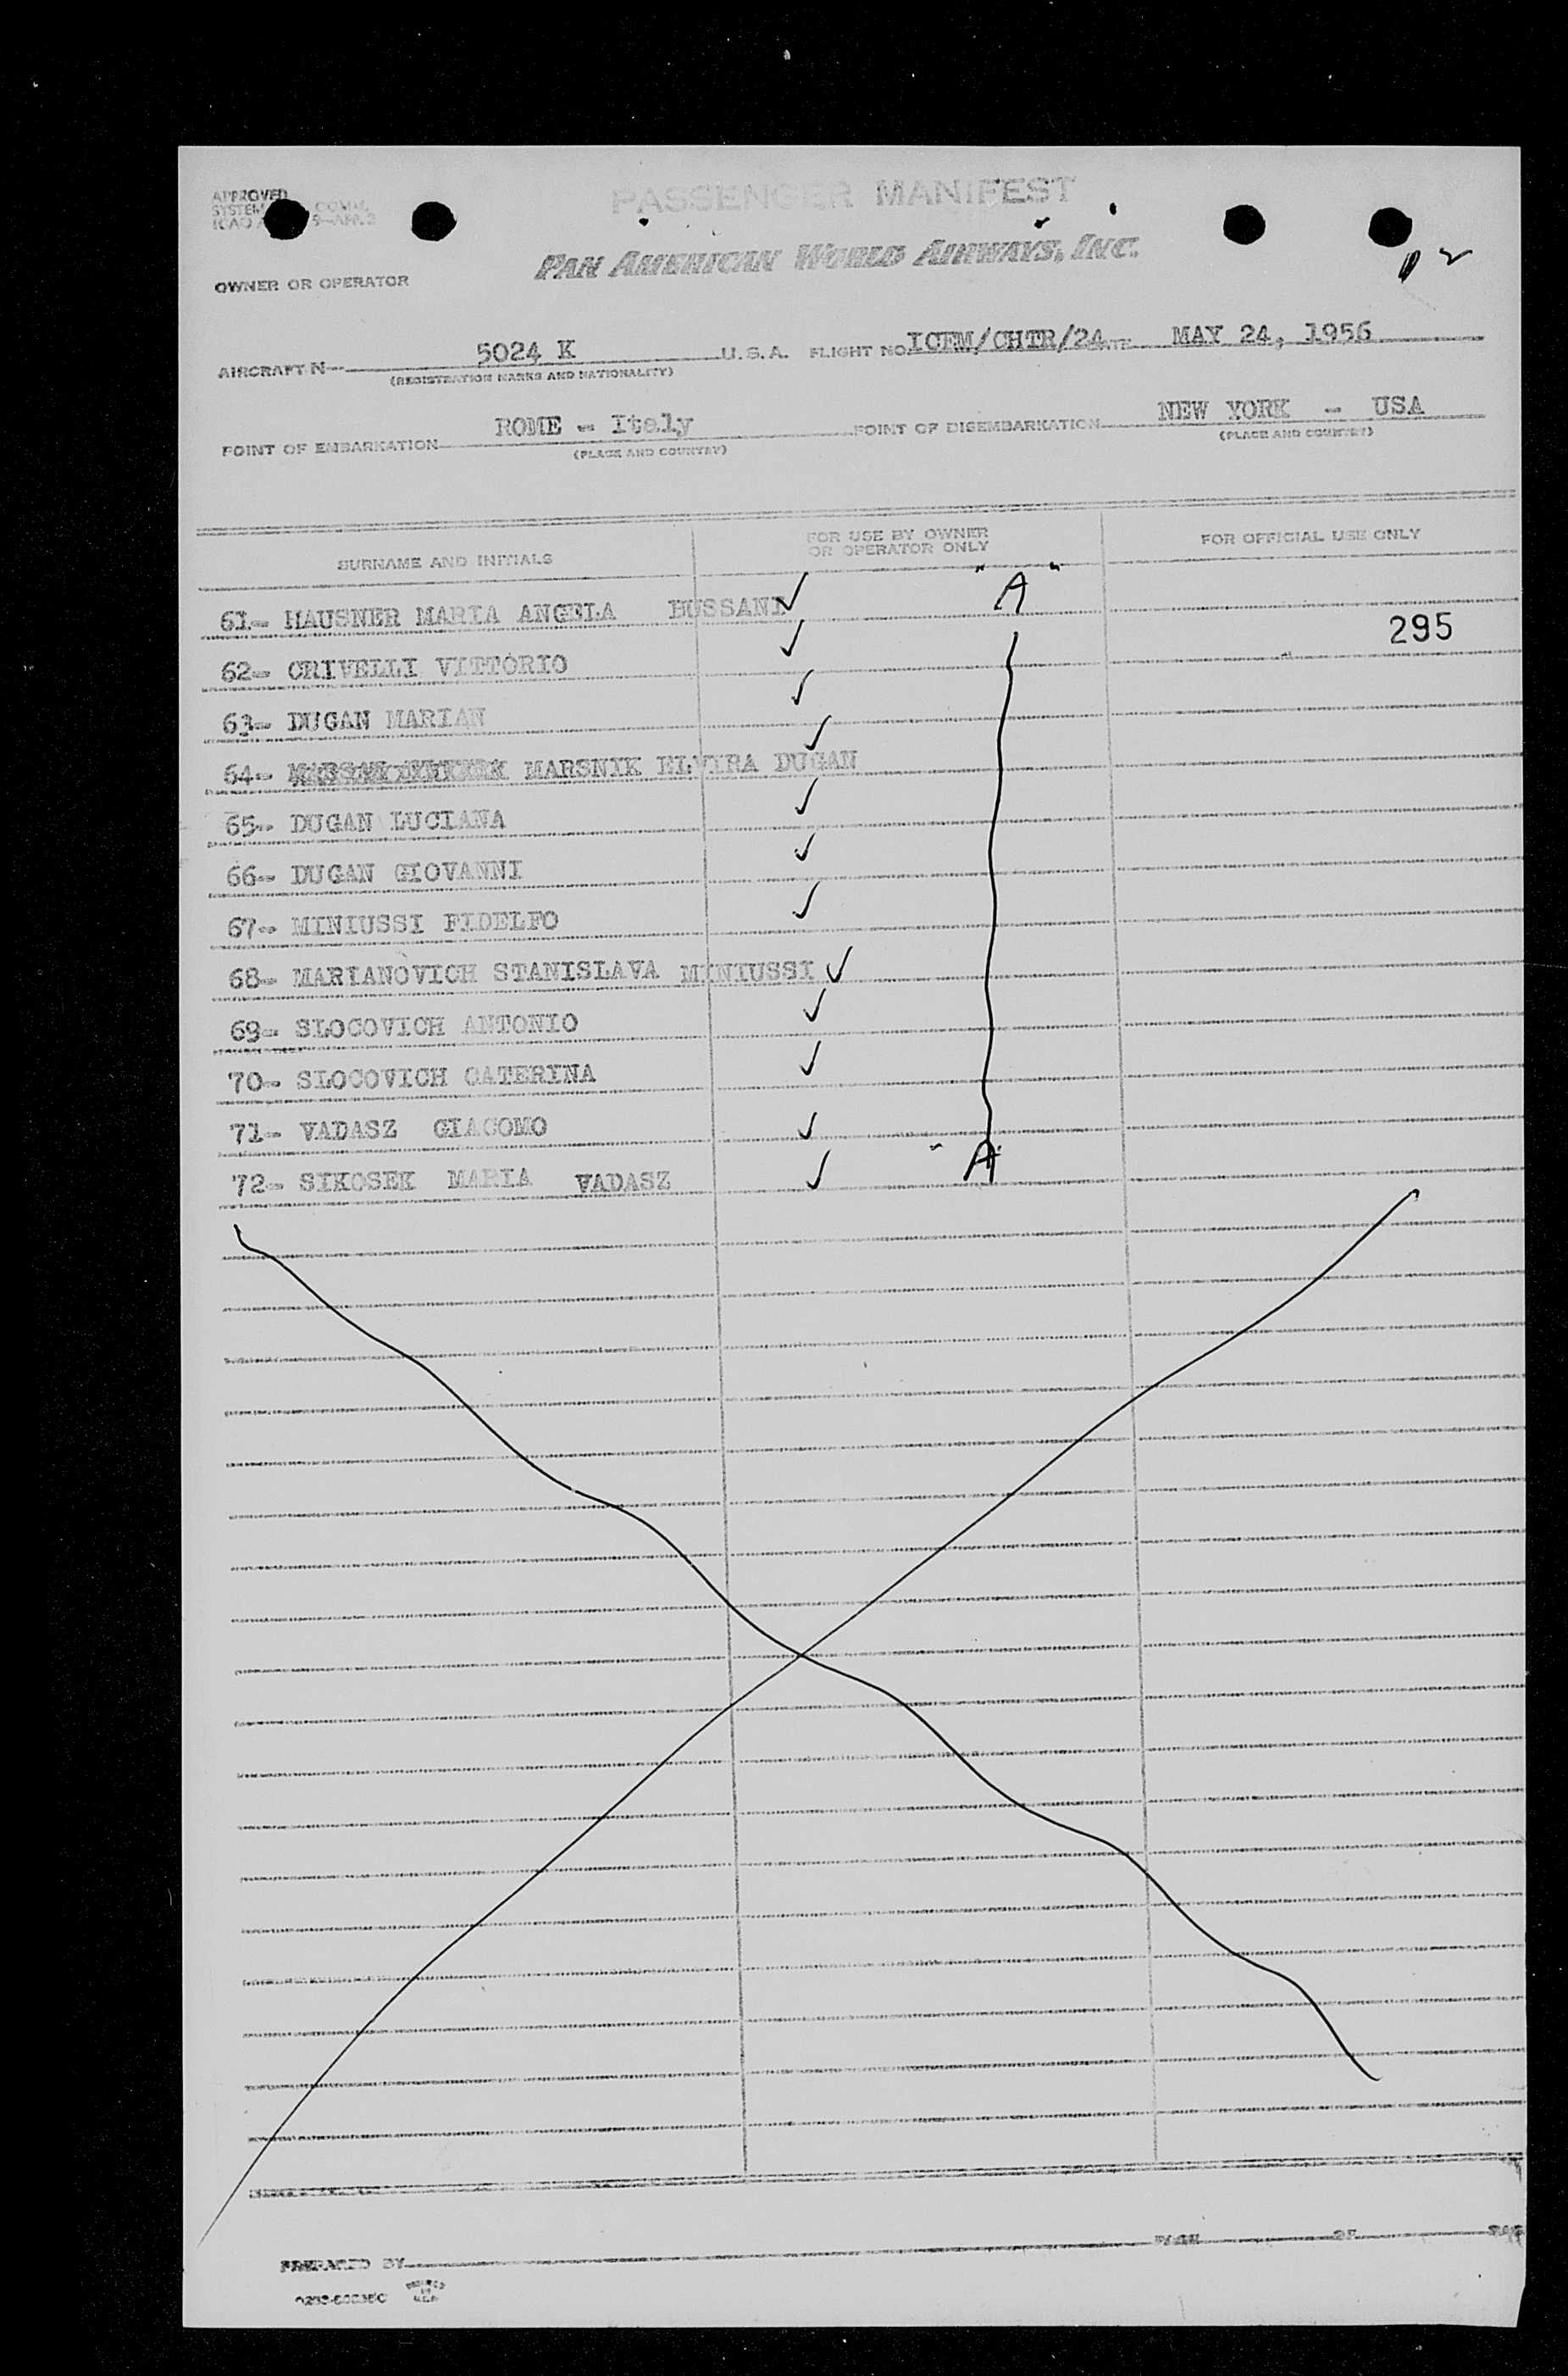 APPROVED
SYSTEM COMM.
ICAO A 9-APP.3
PASSENGER MANIFEST
PAN AMERICAN WORLD AIRWAYS, INC.
OWNER OR OPERATOR
AIRCRAFT N— 5024 K U.S.A. FLIGHT NO. ICEM/CHTR/24 DATE MAY 24, 1956
(REGISTRATION MARKS AND NATIONALITY)
POINT OF EMBARKATION ROME - Italy POINT OF DISEMBARKATION NEW YORK - USA
(PLACE AND COUNTRY) (PLACE AND COUNTRY)
SURNAME AND INITIALS FOR USE BY OWNER OR OPERATOR ONLY FOR OFFICIAL USE ONLY
61- HAUSNER MARIA ANGELA BUSSANI ✓ "A"
295
62- CRIVELLI VITTORIO ✓
63- DUGAN MARIAN ✓
64- MARSNIK ELVIRA DUGAN ✓
65- DUGAN LUCIANA ✓
66- DUGAN GIOVANNI ✓
67- MINIUSSI FIDELFO ✓
68- MARIANOVICH STANISLAVA MINIUSSI ✓
69- SLOCOVICH ANTONIO ✓
70- SLOCOVICH CATERINA ✓
71- VADASZ GIACOMO ✓
72- SIKOSEK MARIA VADASZ ✓ "A"
PREPARED BY PAGE OF
PRINTED IN U.S.A.